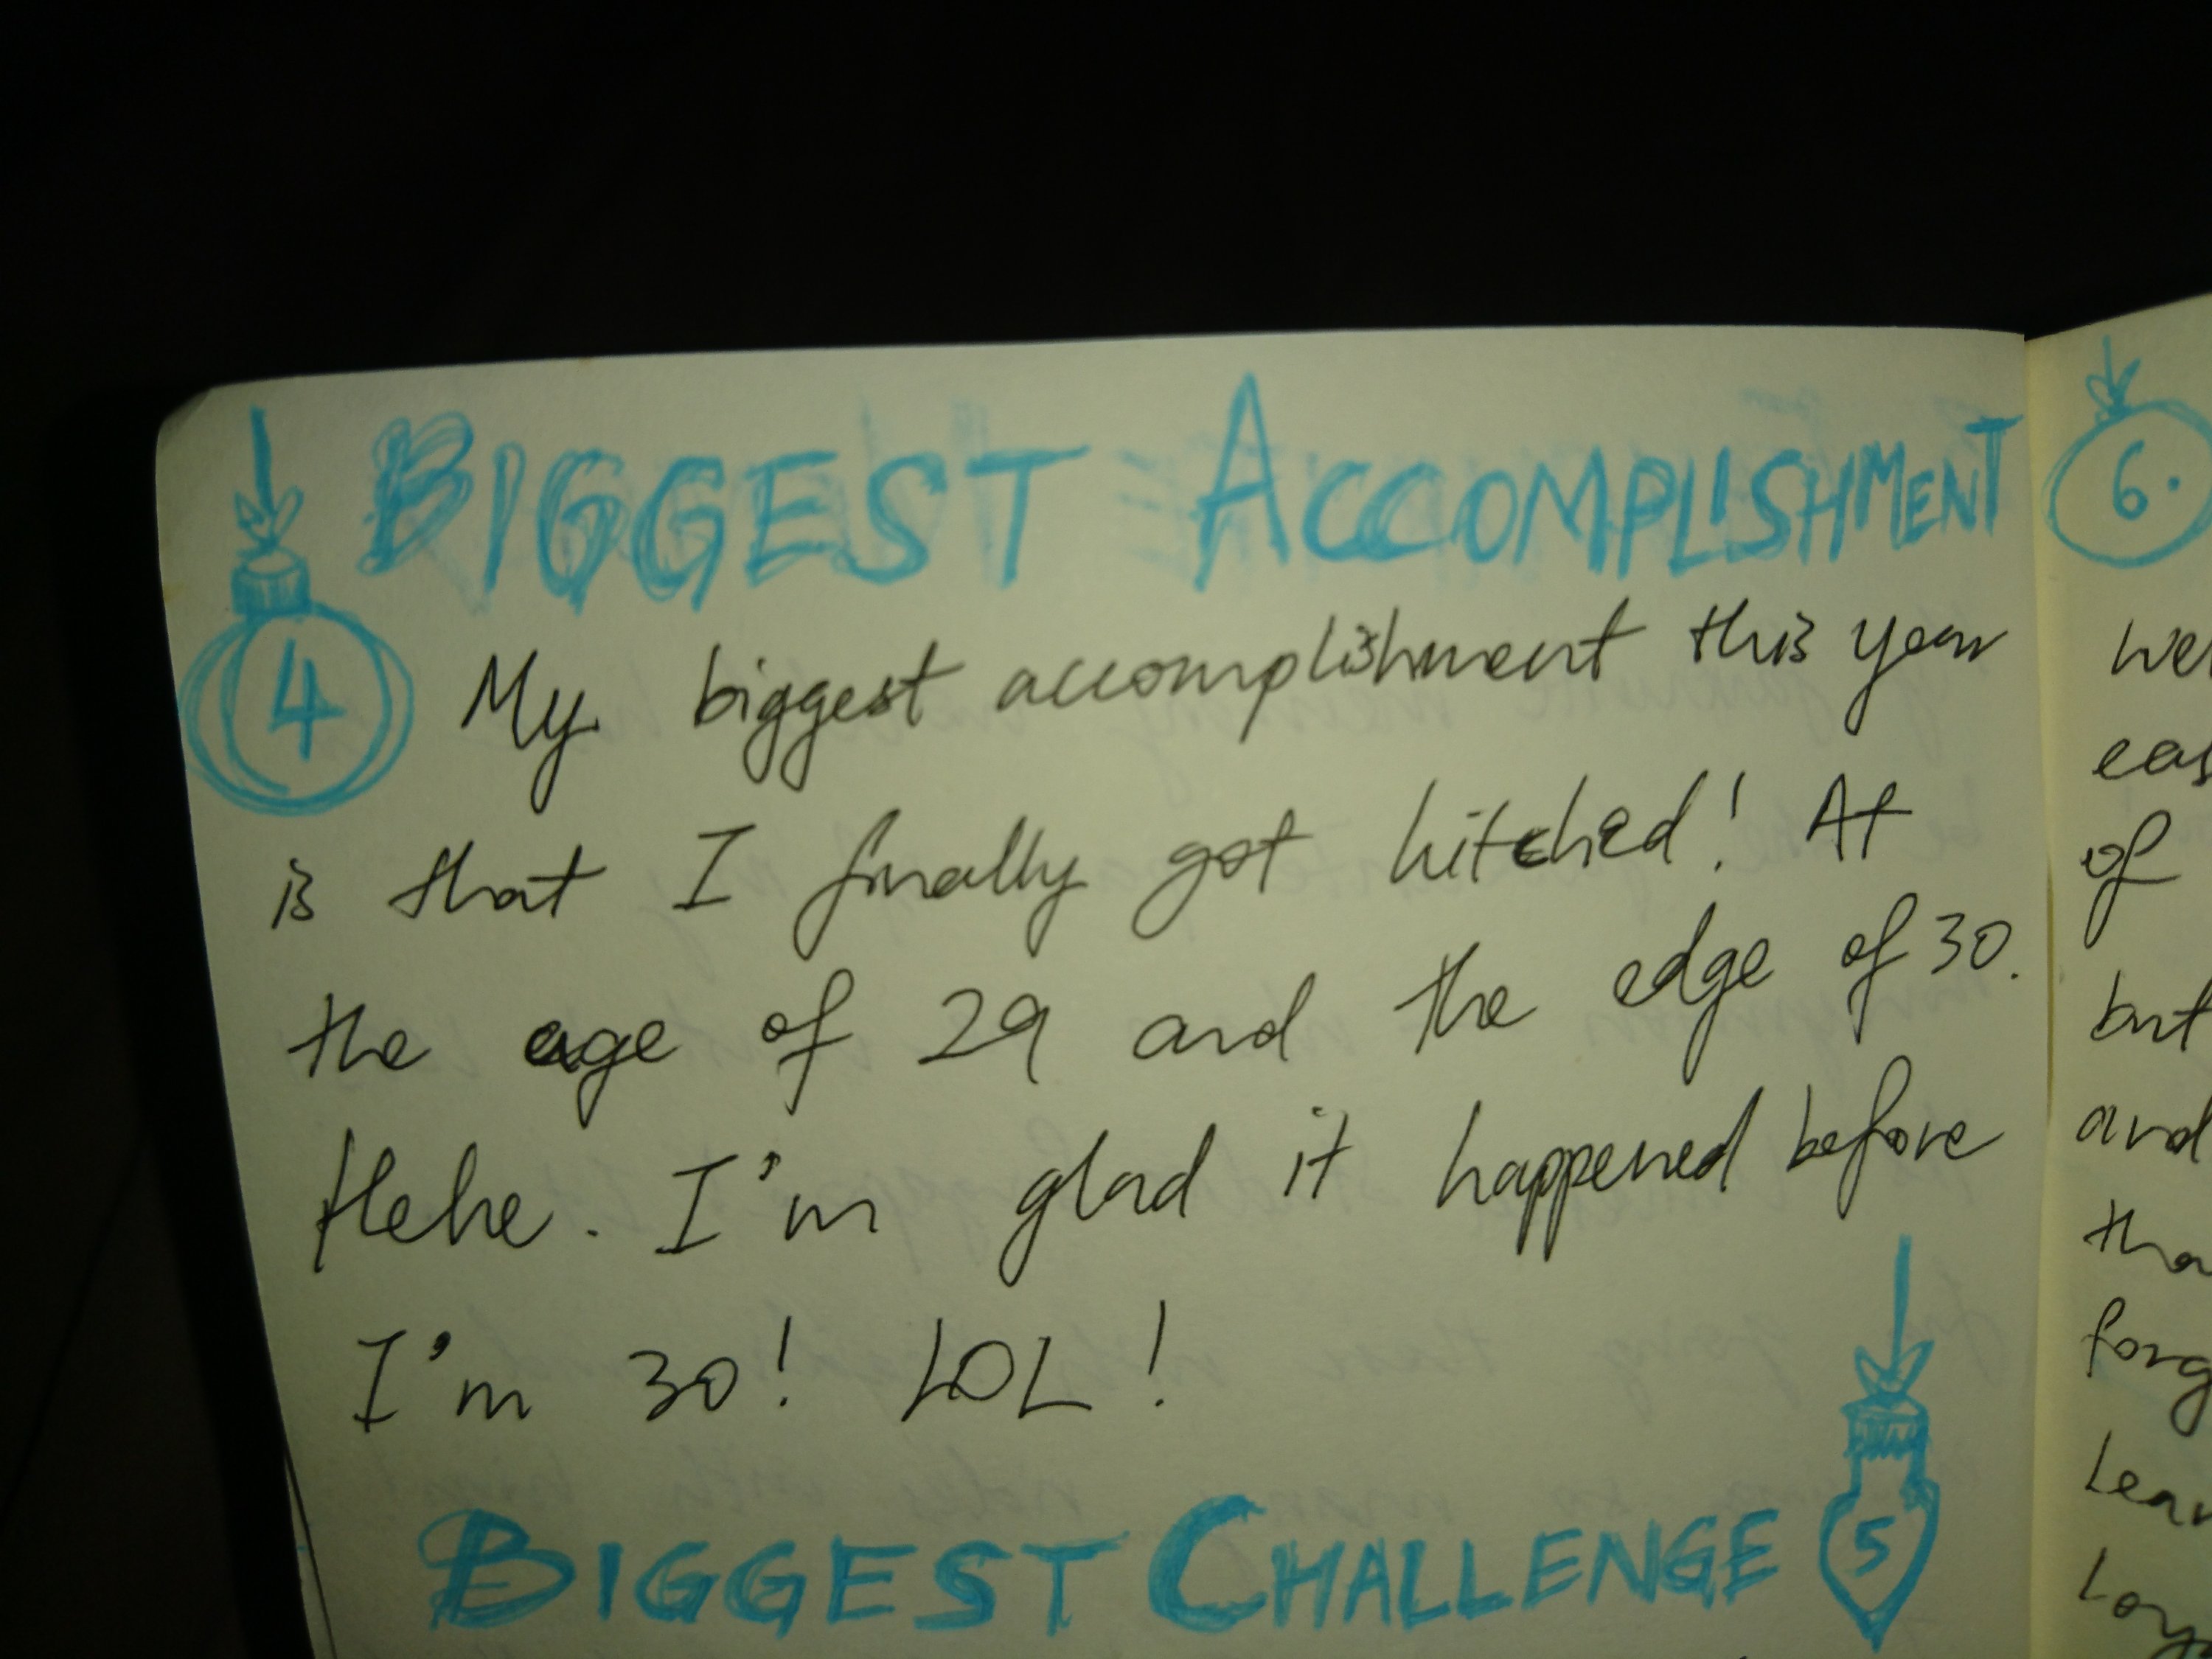 BIGGEST ACCOMPLISHMENT
4 My biggest accomplishment this year
is that I finally got hitched! At
the age of 29 and the edge of 30.
Hehe. I'm glad it happened before
I'm 30! LOL!
BIGGEST CHALLENGE 5
6.
of
but
and